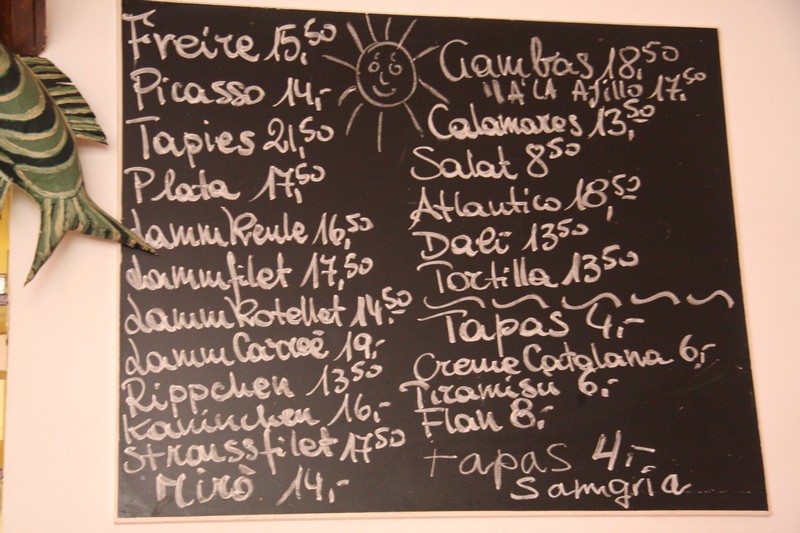 Freire 15,50
Picasso 14,-
Tapies 21,50
Plata 17,50
Lammkeule 16,50
Lammfilet 17,50
Lammkotellet 14,50
Lamm Carreè 19,-
Rippchen 13 50
Kaninchen 16,-
Straussfilet 17 50
Mirò 14,-
Gambas 18,50
" A LA AJillo 17,50
Calamares 13,50
Salat 8 50
Atlantico 18,50
Dali 13 50
Tortilla 13 50
Tapas 4,-
Creme Catalana 6,-
Tiramisu 6,-
Flan 8,-
Tapas 4,-
Samgria